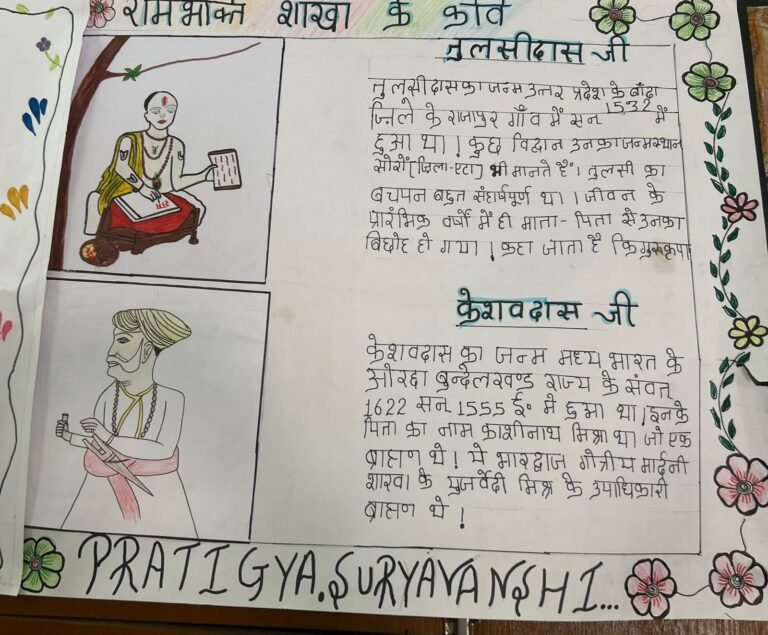 रामभक्ति शाखा के कवि
तुलसीदास जी
तुलसीदास का जन्म उत्तर प्रदेश के बाँदा
जिले के राजापुर गाँव में सन 1532 में
हुआ था। कुछ विद्वान उनका जन्मस्थान
सोरों (जिला-एटा) भी मानते हैं। तुलसी का
बचपन बहुत संघर्षपूर्ण था। जीवन के
प्रारंभिक वर्षों में ही माता-पिता से उनका
बिछोह हो गया। कहा जाता है कि गुरुकृपा
केशवदास जी
केशवदास का जन्म मध्य भारत के
ओरछा बुन्देलखण्ड राज्य के संवत्
1622 सन् 1555 ई० में हुआ था। इनके
पिता का नाम काशीनाथ मिश्रा था जो एक
ब्राह्मण थे। ये भारद्वाज गोत्रीय मार्दनी
शाखा के यजुर्वेदी मिश्र के उपाधिकारी
ब्राह्मण थे।
PRATIGYA.SURYAVANSHI...